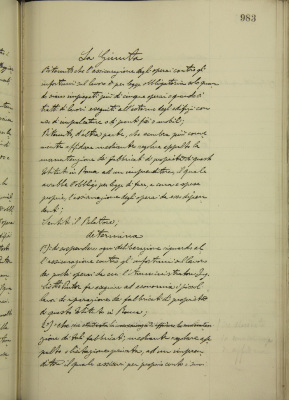 983
La Giunta
Ritenuto che l'assicurazione degli operai contro gli
infortuni sul lavoro è per legge obbligatoria allo quando
vi siano impiegati più di cinque operai e quando si
tratti di lavori eseguiti all'esterno degli edifici con
uso di impalcature o di ponti fissi o mobili;
Ritenuto, d'altra parte, che sembra più conve
niente affidare mediante regolare appalto la
manutenzione dei fabbricati di proprietà di questo
Istituto in Roma ad un imprenditore, il quale
avrebbe l'obbligo per legge di fare, a cura e spese
proprie, l'assicurazione degli operai da esso dipen
denti;
Sentito il Relatore;
determina
1°) di sospendere ogni deliberazione riguardo al
l'assicurazione contro gli infortuni sul lavoro
dei pochi operai che con l'Amministratore Ing.
fa eseguire ad economia i piccoli
lavori di riparazione dei fabbricati di proprietà
di questo Istituto in Roma;
2°) che
zione di detti fabbricati, mediante regolare ap
palto o licitazione privata, ad un impren
ditore il quale assicuri per proprio conto i suoi